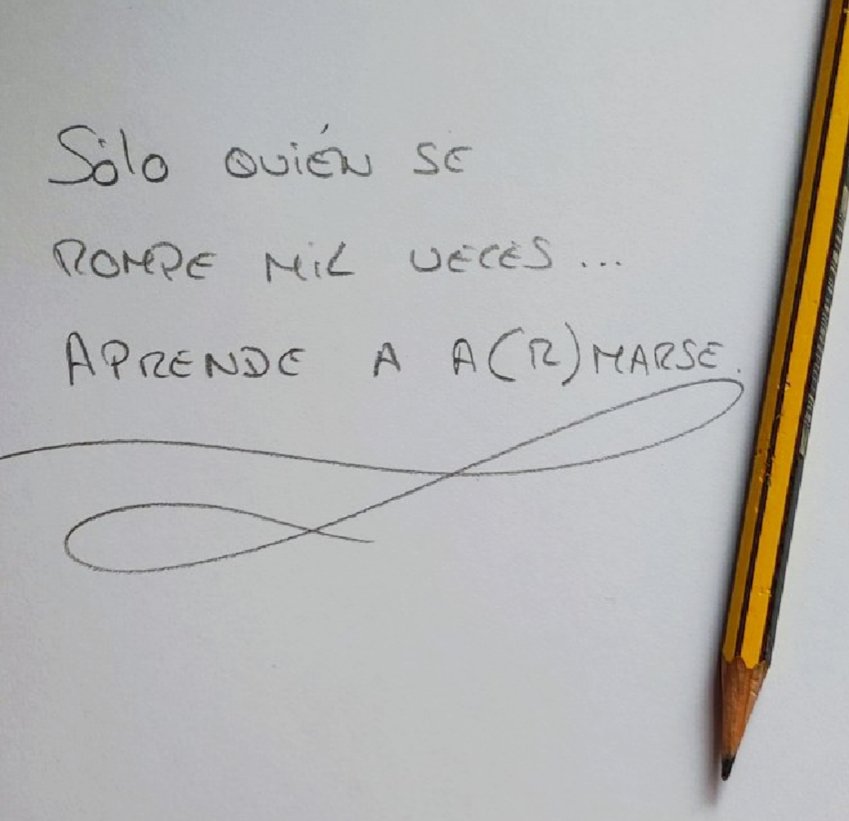 Sólo QUIÉN SE
ROMPE MIL VECES...
APRENDE A A(R)MARSE.